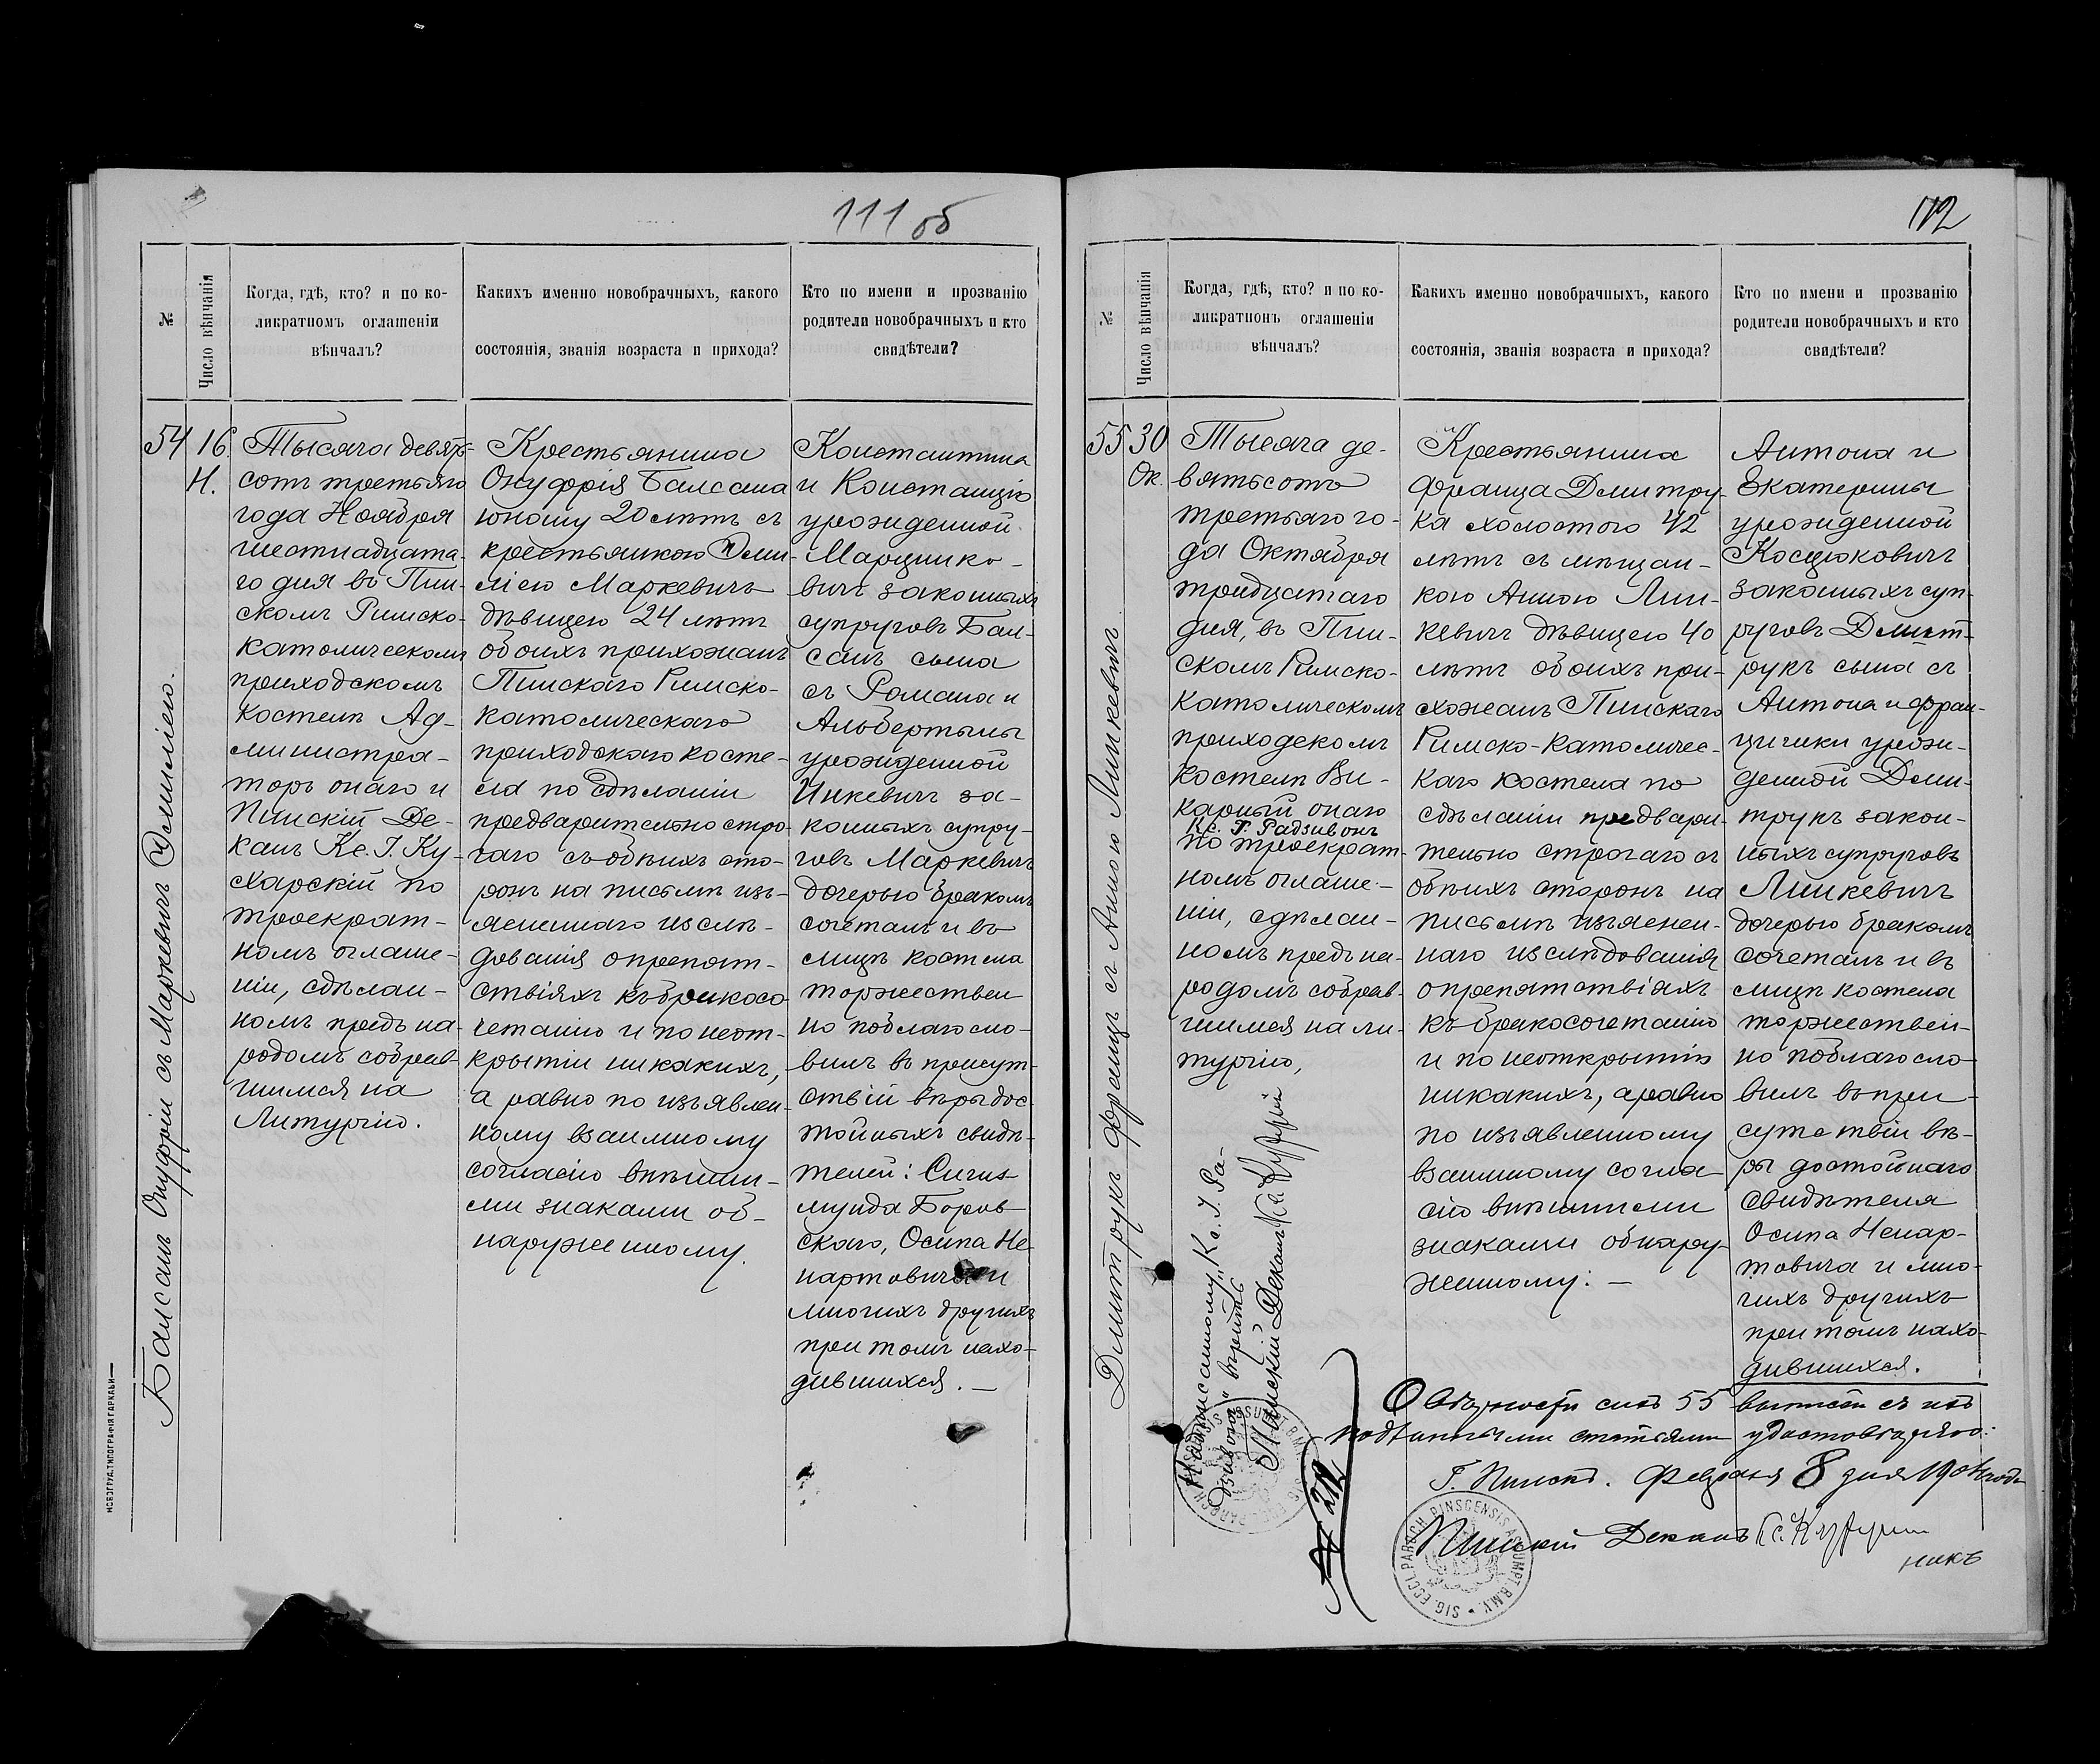 111 об
№
Число вѣнчанія
Когда, гдѣ, кто? и по ко-
ликратномъ оглашеніи
вѣнчалъ?
Какихъ именно новобрачныхъ, какого
состоянія, званія возраста и прихода?
Кто по имени и прозванію
родители новобрачныхъ и кто
свидѣтели?
Балсанъ Онуфрій съ Маркевичъ Эмиліею.
54
16.
Н.
Тысяча девять-
сотъ третьяго
года Ноября
шестнадцата-
го дня въ Пин-
скомъ Римско-
католическомъ
приходскомъ
костелѣ Ад-
министра-
торъ онаго и
Пинскій Де-
канъ Кс. І. Ку-
харскій по
троекрат-
номъ оглаше-
ніи, сдѣлан-
номъ предъ на-
родомъ собрав-
шимся на
Литургію.
Крестьянина
Онуфрія Балсана
юношу 20 лѣтъ съ
крестьянкою Эми-
ліею Маркевичъ
дѣвицею 24 лѣтъ
обоихъ прихожанъ
Пинскаго Римско-
католическаго
приходскаго косте-
ла по сдѣланіи
предварительно стро-
гаго съ обѣихъ сто-
ронъ на письмѣ изъ-
ясненнаго изслѣ-
дованія о препят-
ствіяхъ къ бракосо
четанію и по неот-
крытіи никакихъ,
а равно по изъявлен-
ному взаимному
согласію внѣшни-
ми знаками об-
наруженному.
Константина
и Констанціи
урожденной
Марцинко-
вичъ законныхъ
супруговъ Бал-
санъ сына
съ Романа и
Альбертыны
урожденной
Инкевичъ за-
конныхъ супру-
говъ Маркевичъ
дочерью бракомъ
сочеталъ и въ
лицѣ костела
торжествен
но поблагосло-
вилъ въ присут-
ствіи вѣры дос-
тойныхъ свидѣ-
телей: Сигиз-
мунда Боров-
скаго, Осипа Не-
нартовича и
многихъ другихъ
при томъ нахо-
дившихся. —
НСВЗГРУД. ТИПОГРАФІЯ ГАРКАВИ
112
№
Число вѣнчанія
Когда, гдѣ, кто? и по ко-
ликратномъ оглашеніи
вѣнчалъ?
Какихъ именно новобрачныхъ, какого
состоянія, званія возраста и прихода?
Кто по имени и прозванію
родители новобрачныхъ и кто
свидѣтели?
Дмитрукъ Францъ съ Анною Линкевичъ
55
30
Ок.
Тысяча де-
вятьсотъ
третьяго го-
да Октября
тридцатаго
дня, въ Пин-
скомъ Римско-
католическомъ
приходскомъ
костелѣ Ви-
карный онаго
Кс. І. Радзивонъ
по троекрат-
номъ оглаше-
ніи, сдѣлан-
номъ предъ на-
родомъ собрав-
шимся на ли-
тургію,
Надписанному „Кс. І. Ра-
дзивонъ“ вѣрить
Пинскій Деканъ Кс.
Крестьянина
Франца Дмитру-
ка холостого 42
лѣтъ съ мѣщан-
кою Анною Лин-
кевичъ дѣвицею 40
лѣтъ обоихъ при-
хожанъ Пинскаго
Римско-Католичес-
каго костела по
сдѣланіи предвари-
тельно строгаго съ
обѣихъ сторонъ на
письмѣ изъяснен-
наго изслѣдованія
о препятствіяхъ
къ бракосочетанію
и по неоткрытіи
никакихъ, а равно
по изъявленному
взаимному согла
сію внѣшними
знаками обнару-
женному: —
Антона и
Екатерины
урожденной
Косцюковичъ
законныхъ суп-
руговъ Дмит-
рукъ сына съ
Антона и Фран-
цишки урож-
денной Дми-
трукъ закон-
ныхъ супруговъ
Линкевичъ
дочерью бракомъ
сочеталъ и въ
лицѣ костела
торжествен-
но поблагосло
вилъ въ при-
сутствіи вѣ-
ры достойнаго
свидѣтеля
Осипа Ненар-
товича и мно-
гихъ другихъ
при томъ нахо-
дившихся.
О вѣрности сихъ 55 выписей съ ихъ
подлинными статьями удостовѣряю:
Г. Пинскъ. Февраля 8 дня 1904 года
Пинскій Деканъ Кс.
SIG. ECCL. PAROCH. PINSCENSIS ASSUMPT. B.M.V.